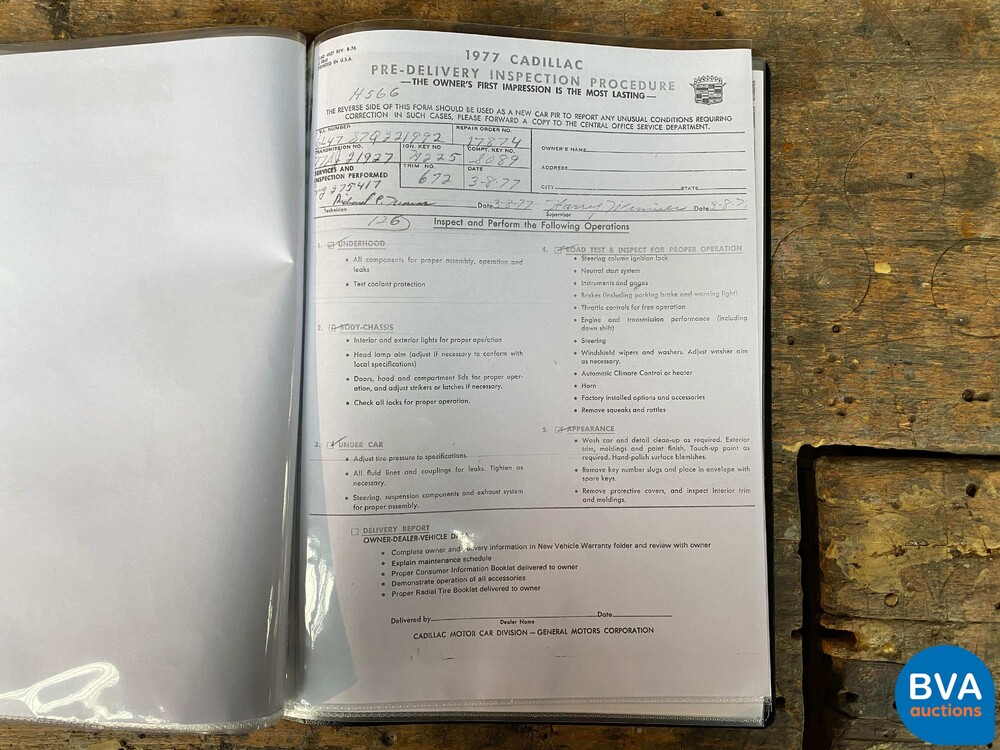 REV. 8-76
PRINTED IN U.S.A.
1977 CADILLAC
PRE-DELIVERY INSPECTION PROCEDURE
—THE OWNER'S FIRST IMPRESSION IS THE MOST LASTING—
H566
THE REVERSE SIDE OF THIS FORM SHOULD BE USED AS A NEW CAR PIR TO REPORT ANY UNUSUAL CONDITIONS REQUIRING
CORRECTION IN SUCH CASES, PLEASE FORWARD A COPY TO THE CENTRAL OFFICE SERVICE DEPARTMENT.
NUMBER
REPAIR ORDER NO.
17874
OWNER'S NAME
TRANSMISSION NO.
21927
IGN. KEY NO
COMPT. KEY NO.
8089
ADDRESS
SERVICES AND
INSPECTION PERFORMED
275417
TRIM NO.
672
DATE
3-8-77
CITY STATE
Technician
Date 3-8-77
Harry
Supervisor
Date
126
Inspect and Perform the Following Operations
1. UNDERHOOD
• All components for proper assembly, operation and
leaks
• Test coolant protection
2. BODY-CHASSIS
• Interior and exterior lights for proper operation
• Head lamp aim (adjust if necessary to conform with
local specifications)
• Doors, hood and compartment lids for proper oper-
ation, and adjust strikers or latches if necessary.
• Check all locks for proper operation.
3. UNDER CAR
• Adjust tire pressure to specifications.
• All fluid lines and couplings for leaks. Tighten as
necessary.
• Steering, suspension components and exhaust system
for proper assembly.
4. ROAD TEST & INSPECT FOR PROPER OPERATION
• Steering column ignition lock
• Neutral start system
• Instruments and gages
• Brakes (including parking brake and warning light)
• Throttle controls for free operation
• Engine and transmission performance (including
down shift)
• Steering
• Windshield wipers and washers. Adjust washer aim
as necessary.
• Automatic Climate Control or heater
• Horn
• Factory installed options and accessories
• Remove squeaks and rattles
5. APPEARANCE
• Wash car and detail clean-up as required. Exterior
trim, moldings and paint finish. Touch-up paint as
required. Hand-polish surface blemishes.
• Remove key number slugs and place in envelope with
spare keys.
• Remove protective covers, and inspect interior trim
and moldings.
DELIVERY REPORT
OWNER-DEALER-VEHICLE
• Complete owner and delivery information in New Vehicle Warranty folder and review with owner
• Explain maintenance schedule
• Proper Consumer Information Booklet delivered to owner
• Demonstrate operation of all accessories
• Proper Radial Tire Booklet delivered to owner
Delivered by Date
Dealer Name
CADILLAC MOTOR CAR DIVISION — GENERAL MOTORS CORPORATION
BVA
auctions